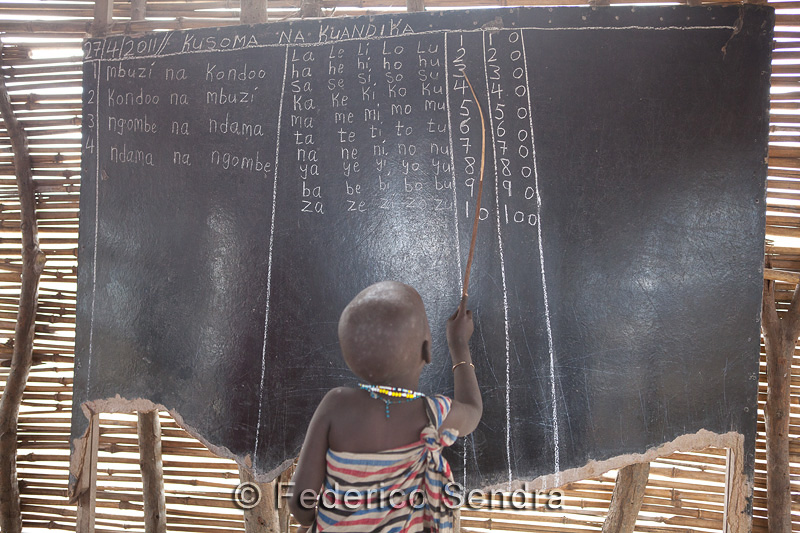 27/4/2011// KUSOMA NA KUANDIKA
1 mbuzi na Kondoo
2 Kondoo na mbuzi
3 ngombe na ndama
4 ndama na ngombe
La Le Li Lo Lu
ha he hi ho hu
sa se si so su
Ka Ke Ki Ko Ku
ma me mi mo mu
ta te ti to tu
na ne ni no nu
ya ye yi yo yu
ba be bi bo bu
za ze zi zo zu
1 10
2 20
3 30
4 40
5 50
6 60
7 70
8 80
9 90
10 100
© Federico Sendra